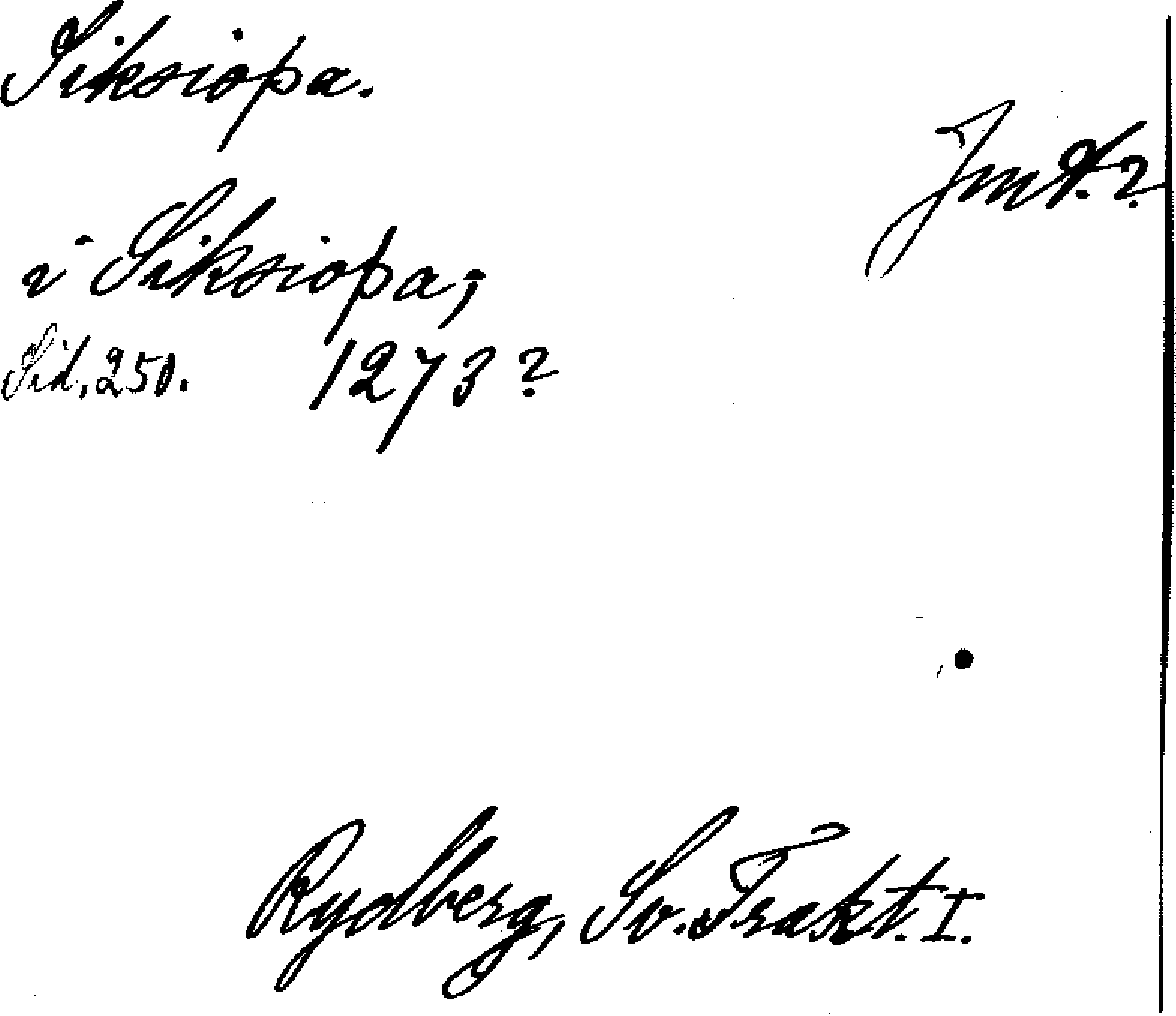 Siksiopa.
Jmt.?
i Siksiopa,
Sid, 250. 1273?
Rydberg, Sv. Trakt. I.